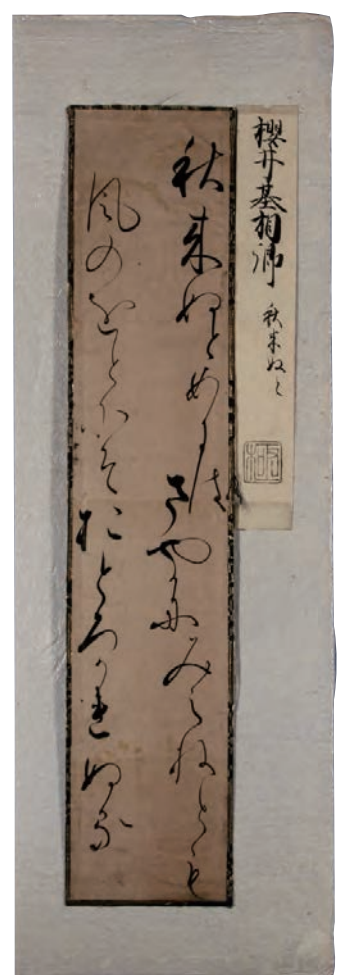 櫻井基相卿 秋来ぬと
秋来ぬとめにはさやかにみえねとも
風のをとにそおとろかれぬる